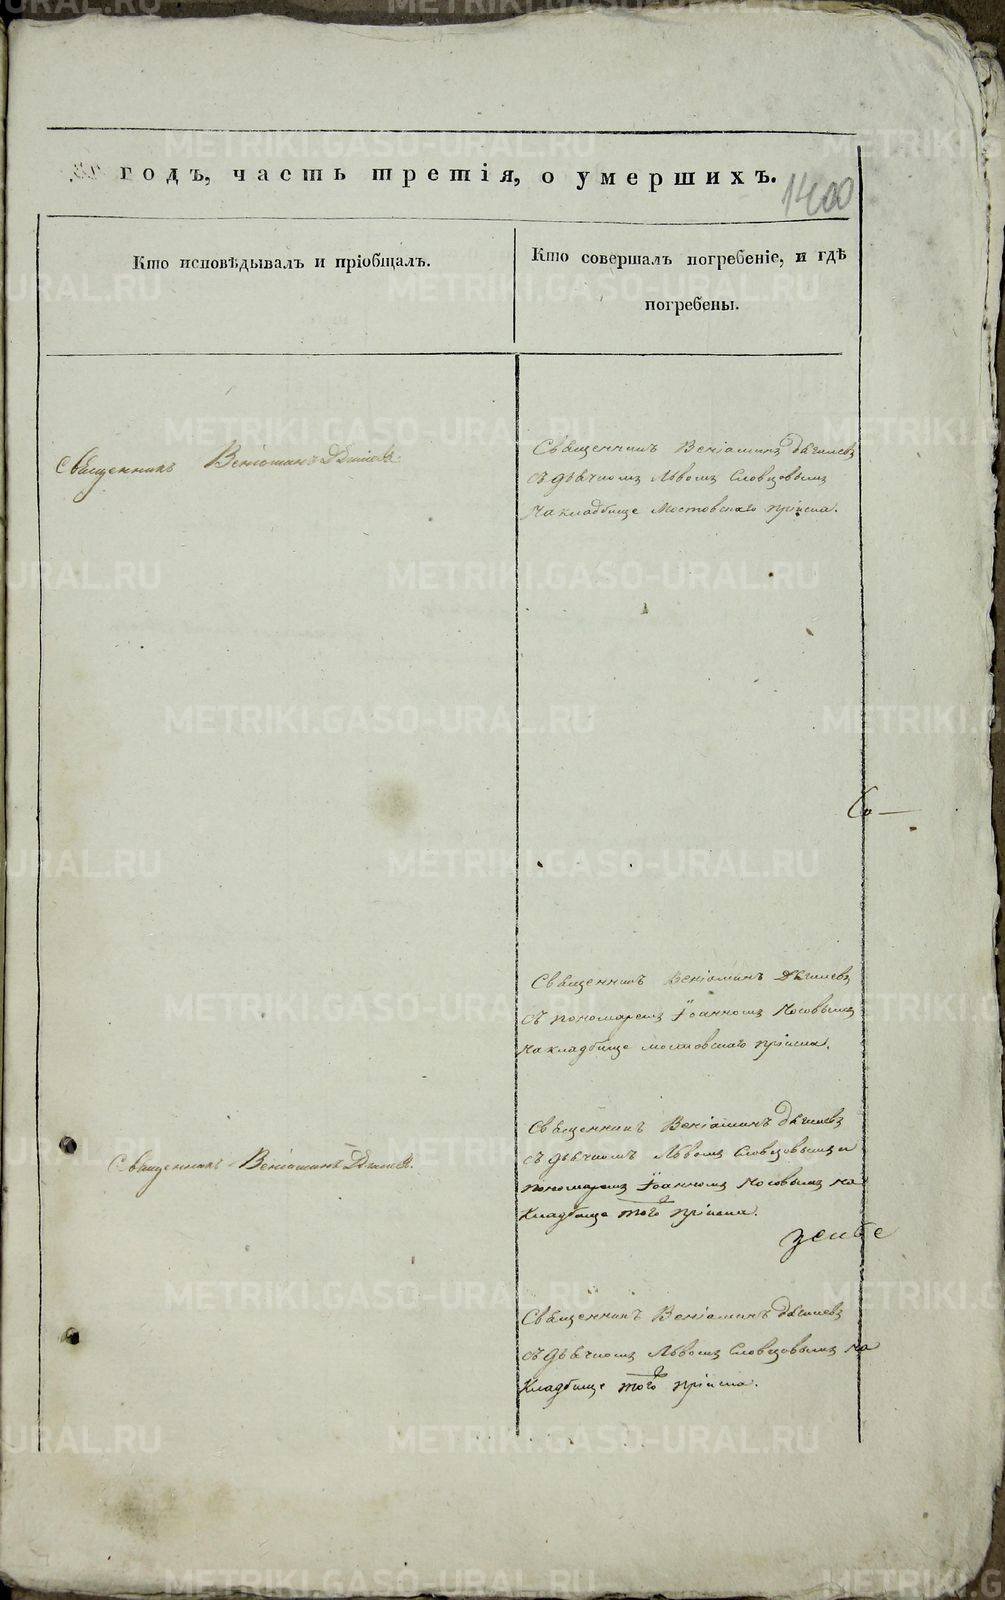 годъ, часть третія, о умершихъ.
1400
Кто исповѣдывалъ и пріобщалъ.
Кто совершалъ погребеніе, и гдѣ
погребены.
Священникъ Веніаминъ Дягилевъ
Священникъ Веніаминъ Дягилевъ
съ дьячкомъ Львомъ Словцовымъ
на кладбище Мостовскаго пріиска.
Со—
Священникъ Веніаминъ Дягилевъ
съ пономаремъ Іоанномъ Носовымъ
на кладбище мостовскаго пріиска.
Священникъ Веніаминъ Дягилевъ
Священникъ Веніаминъ Дягилевъ
съ дьячкомъ Львомъ Словцовымъ и
пономаремъ Іоанномъ Носовымъ на
кладбище того пріиска.
Священникъ Веніаминъ Дягилевъ
съ дьячкомъ Львомъ Словцовымъ на
кладбище того пріиска.
METRIKI.GASO-URAL.RU